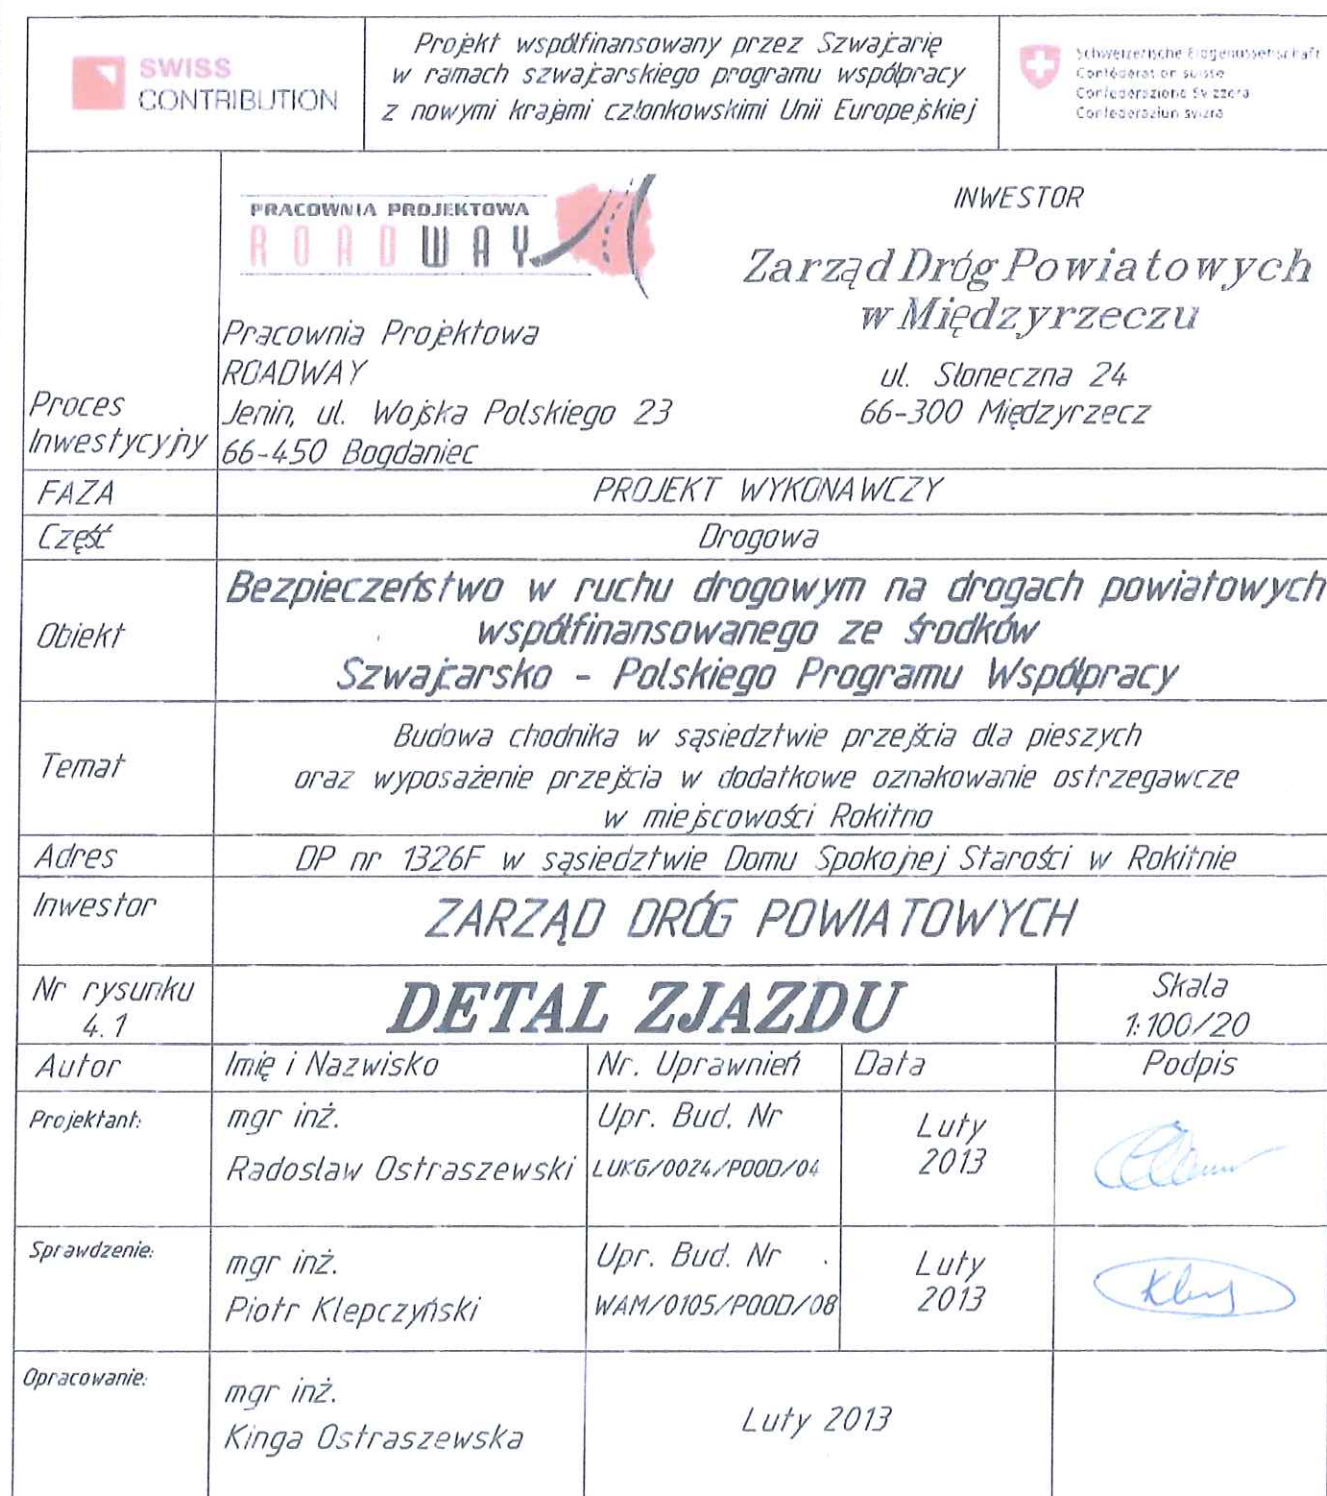 SWISS
CONTRIBUTION
Projekt współfinansowany przez Szwajcarię
w ramach szwajcarskiego programu współpracy
z nowymi krajami członkowskimi Unii Europejskiej
Schweizerische Eidgenossenschaft
Confédération suisse
Confederazione Svizzera
Confederaziun svizra
Proces
Inwestycyjny
PRACOWNIA PROJEKTOWA
ROADWAY
Pracownia Projektowa
ROADWAY
Jenin, ul. Wojska Polskiego 23
66-450 Bogdaniec
INWESTOR
Zarząd Dróg Powiatowych
w Międzyrzeczu
ul. Słoneczna 24
66-300 Międzyrzecz
FAZA
PROJEKT WYKONAWCZY
Część
Drogowa
Obiekt
Bezpieczeństwo w ruchu drogowym na drogach powiatowych
współfinansowanego ze środków
Szwajcarsko - Polskiego Programu Współpracy
Temat
Budowa chodnika w sąsiedztwie przejścia dla pieszych
oraz wyposażenie przejścia w dodatkowe oznakowanie ostrzegawcze
w miejscowości Rokitno
Adres
DP nr 1326F w sąsiedztwie Domu Spokojnej Starości w Rokitnie
Inwestor
ZARZĄD DRÓG POWIATOWYCH
Nr rysunku
4.1
DETAL ZJAZDU
Skala
1:100/20
Autor
Imię i Nazwisko
Nr. Uprawnień
Data
Podpis
Projektant:
mgr inż.
Radosław Ostraszewski
Upr. Bud. Nr
LUKG/0024/POOD/04
Luty
2013
Sprawdzenie:
mgr inż.
Piotr Klepczyński
Upr. Bud. Nr
WAM/0105/POOD/08
Luty
2013
Opracowanie:
mgr inż.
Kinga Ostraszewska
Luty 2013